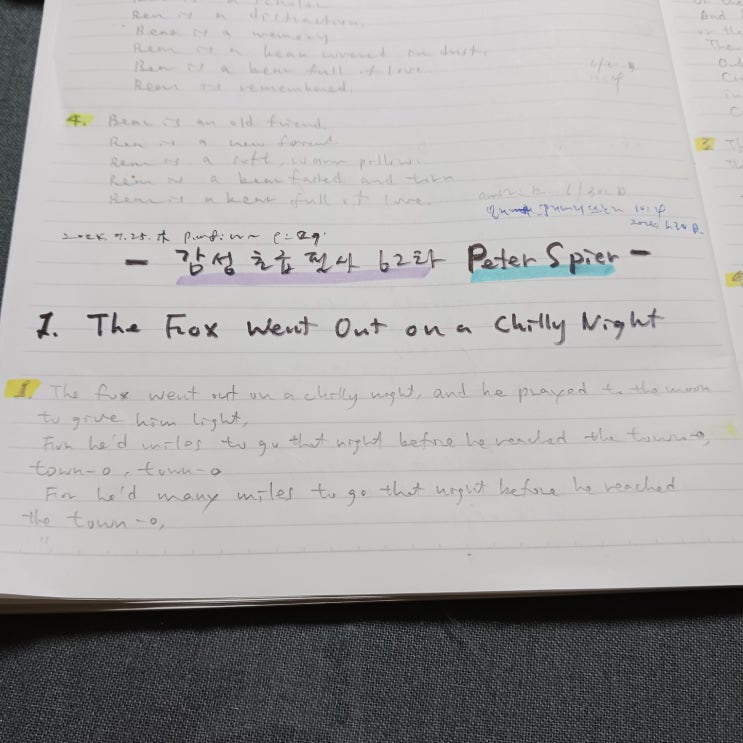 Bear is a distraction.
Bear is a memory
Bear is a bear covered in dust.
Bear is a bear full of love
Bear is remembered.
4. Bear is an old friend.
Bear is a new friend
Bear is a soft, warm pillow.
Bear is a bear faded and torn
Bear is a bear full of love.
- 감성 초급 필사 62차 Peter Spier -
1. The Fox Went Out on a Chilly Night
1. The fox went out on a chilly night, and he prayed to the moon
to give him light,
For he'd miles to go that night before he reached the town-o,
town-o, town-o
For he'd many miles to go that night before he reached
the town-o,